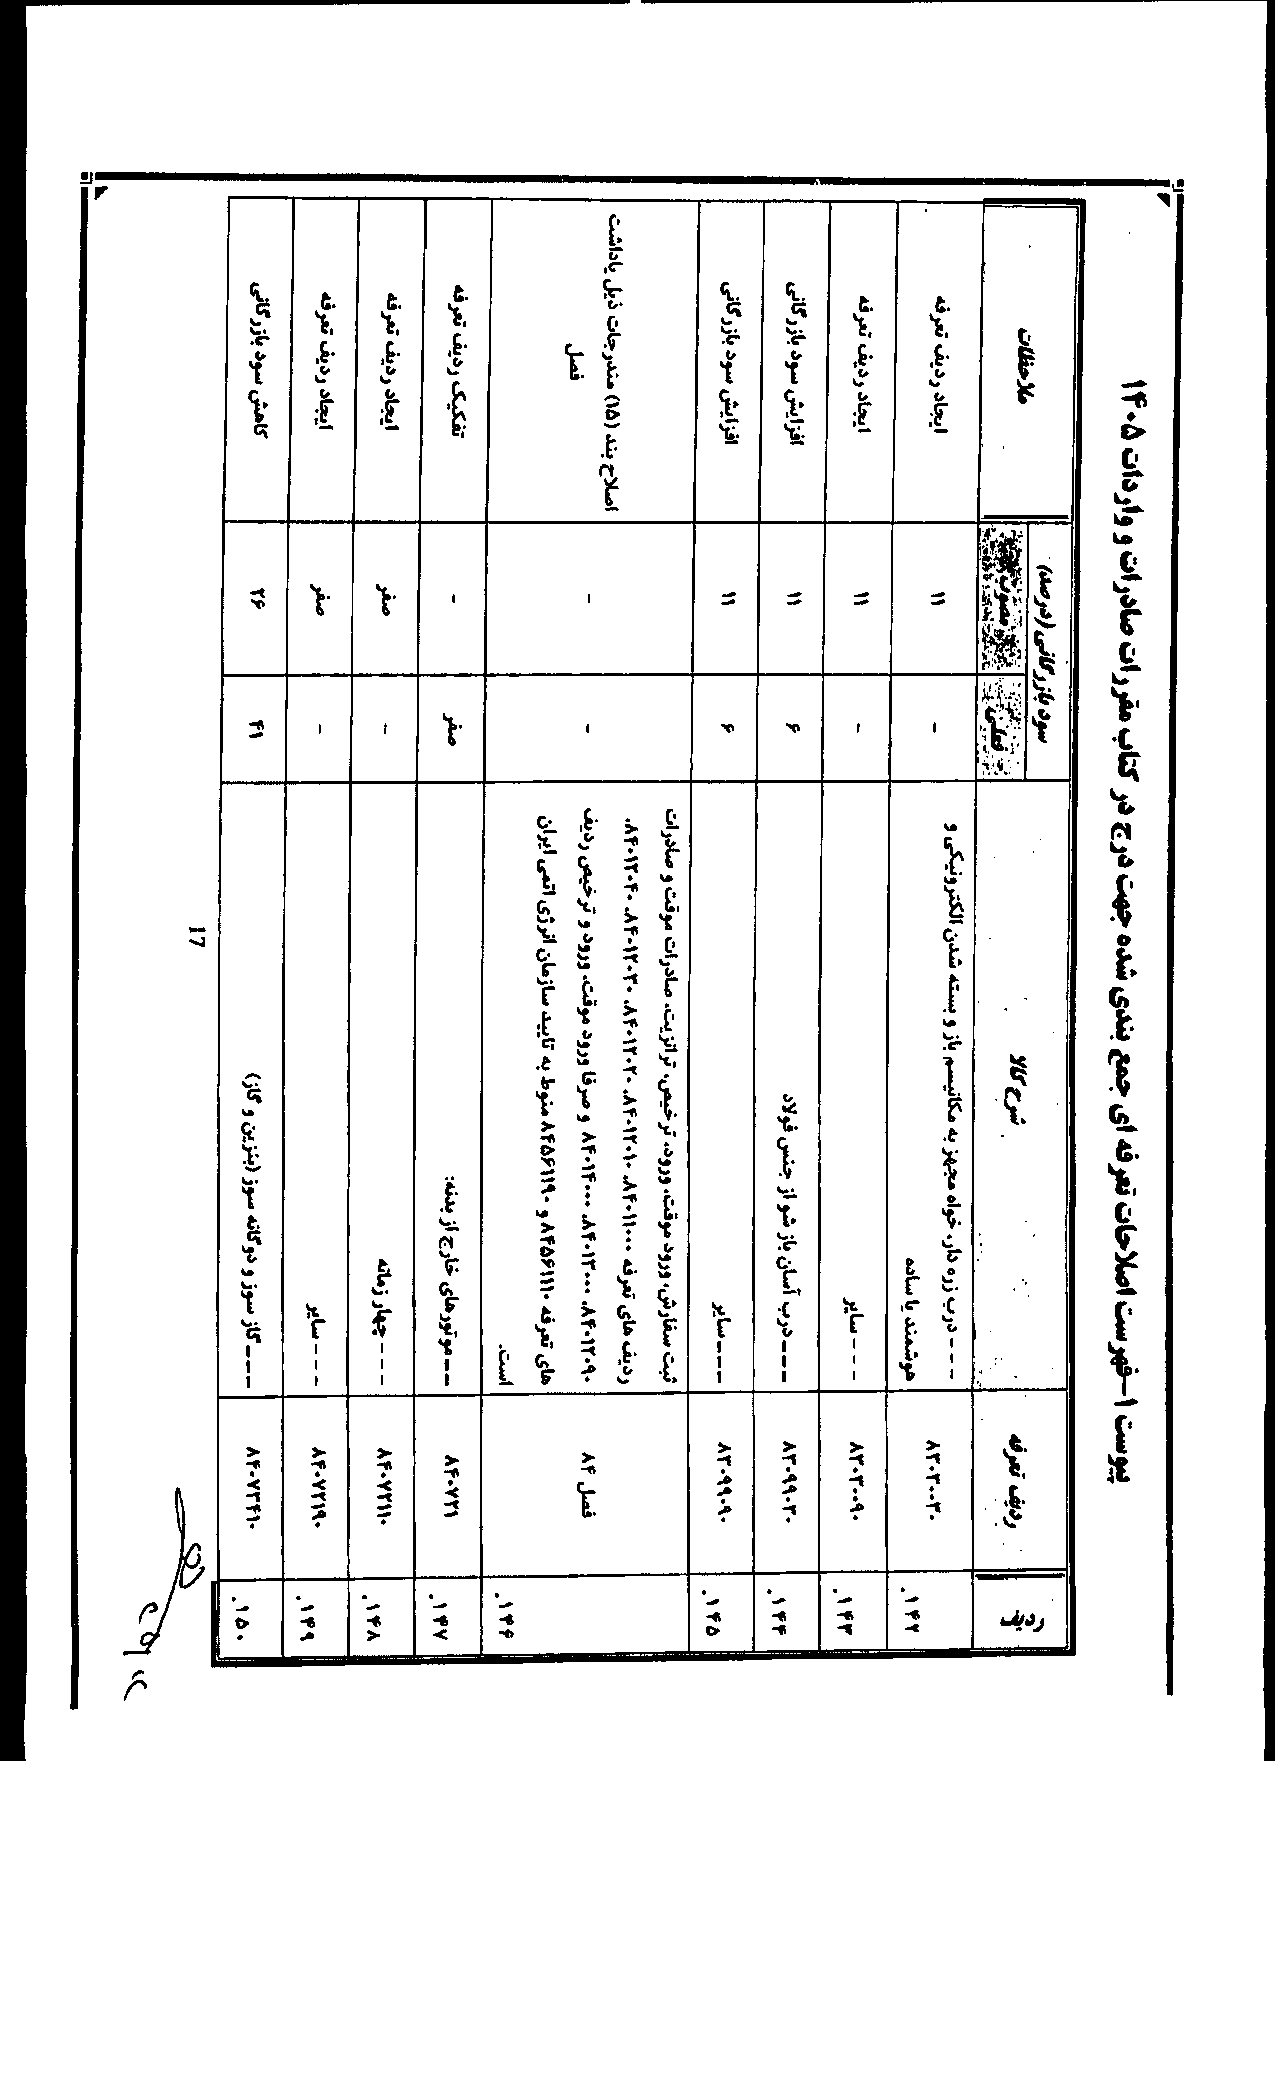 پیوست ۱-فهرست اصلاحات تعرفه ای جمع بندی شده جهت درج در کتاب مقررات صادرات و واردات ۱۴۰۵
ردیف
ردیف تعرفه
شرح کالا
سود بازرگانی (درصد)
فعلی
مصوب
ملاحظات
۱۴۲.
۸۳۰۳۰۰۳۰
- - - درب زره دار، خواه مجهز به مکانیسم باز و بسته شدن الکترونیکی و
هوشمند یا ساده
-
۱۱
ایجاد ردیف تعرفه
۱۴۳.
۸۳۰۳۰۰۹۰
- - - سایر
-
۱۱
ایجاد ردیف تعرفه
۱۴۴.
۸۳۰۹۹۰۳۰
--- درب آسان باز شو از جنس فولاد
۶
۱۱
افزایش سود بازرگانی
۱۴۵.
۸۳۰۹۹۰۹۰
--- سایر
۶
۱۱
افزایش سود بازرگانی
۱۴۶.
فصل ۸۴
ثبت سفارش، ورود موقت، ورود، ترخیص، ترانزیت، صادرات موقت و صادرات
ردیف های تعرفه ۸۴۰۱۱۰۰۰، ۸۴۰۱۲۰۱۰، ۸۴۰۱۲۰۲۰، ۸۴۰۱۲۰۳۰، ۸۴۰۱۲۰۴۰،
۸۴۰۱۲۰۹۰، ۸۴۰۱۳۰۰۰، ۸۴۰۱۴۰۰۰ و صرفا ورود موقت، ورود و ترخیص ردیف
های تعرفه ۸۴۵۶۱۱۱۰ و ۸۴۵۶۱۱۹۰ منوط به تایید سازمان انرژی اتمی ایران
است.
-
-
اصلاح بند (۱۵) مندرجات ذیل یاداشت
فصل
۱۴۷.
۸۴۰۷۲۱
-- موتورهای خارج از بدنه:
صفر
-
تفکیک ردیف تعرفه
۱۴۸.
۸۴۰۷۲۱۱۰
- - - چهار زمانه
-
صفر
ایجاد ردیف تعرفه
۱۴۹.
۸۴۰۷۲۱۹۰
- - - سایر
-
صفر
ایجاد ردیف تعرفه
۱۵۰.
۸۴۰۷۳۴۱۰
--- گاز سوز و دوگانه سوز (بنزین و گاز)
۴۱
۲۶
کاهش سود بازرگانی
17